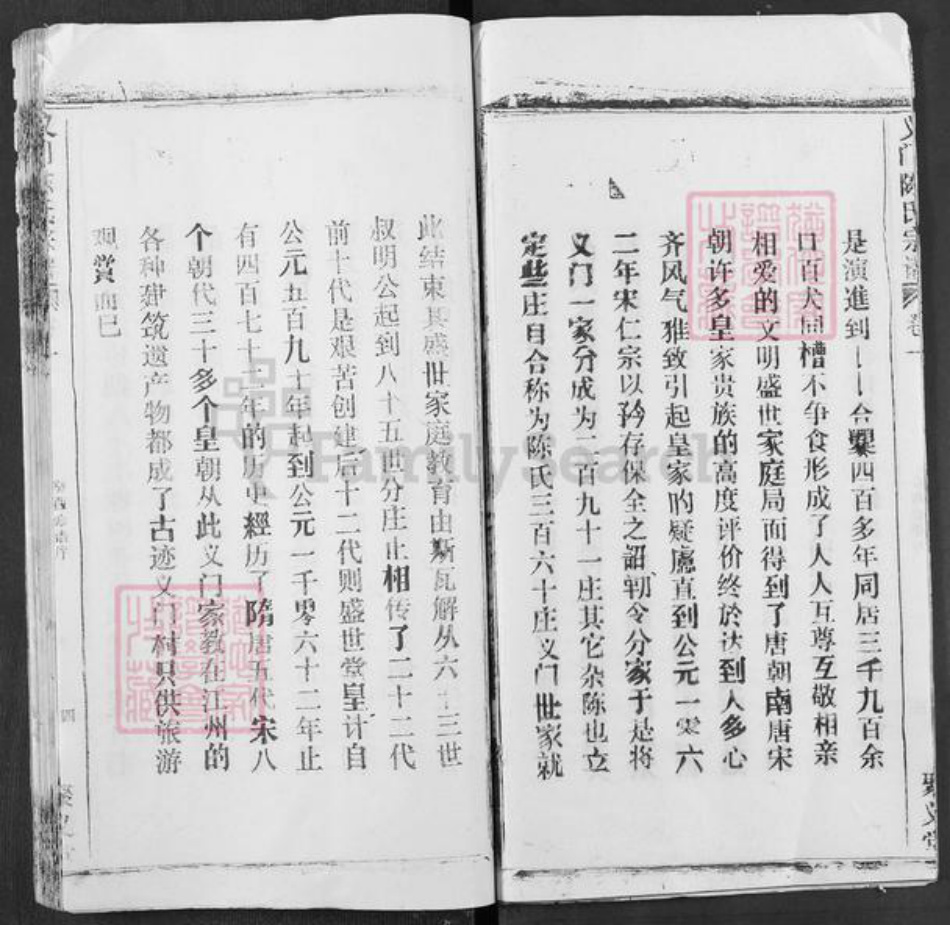 义门陈氏宗谱
卷一
是演進到
合爨四百多年同居三千九百余
口百犬同槽不争食形成了人人互尊互敬相亲
相爱的文明盛世家庭局面得到了唐朝南唐宋
朝许多皇家贵族的高度评价终於达到人多心
齐风气雅致引起皇家的疑慮直到公元一零六
二年宋仁宗以矜存保全之诏韧令分家于是将
义门一家分成为二百九十一庄其它杂陈也立
定些庄目合称为陈氏三百六十庄义门世家就
聚义堂
此结束其盛世家庭教育由斯瓦解从六十三世
叔明公起到八十五世分庄止相传了二十二代
前十代是艰苦创建后十二代则盛世堂皇计自
公元五百九十年起到公元一千零六十二年止
有四百七十二年的历史經历了隋唐五代宋八
个朝代三十多个皇朝从此义门家教在江州的
各种建筑遗产物都成了古迹义门村只供旅游
观赏而已
四
FamilySearch